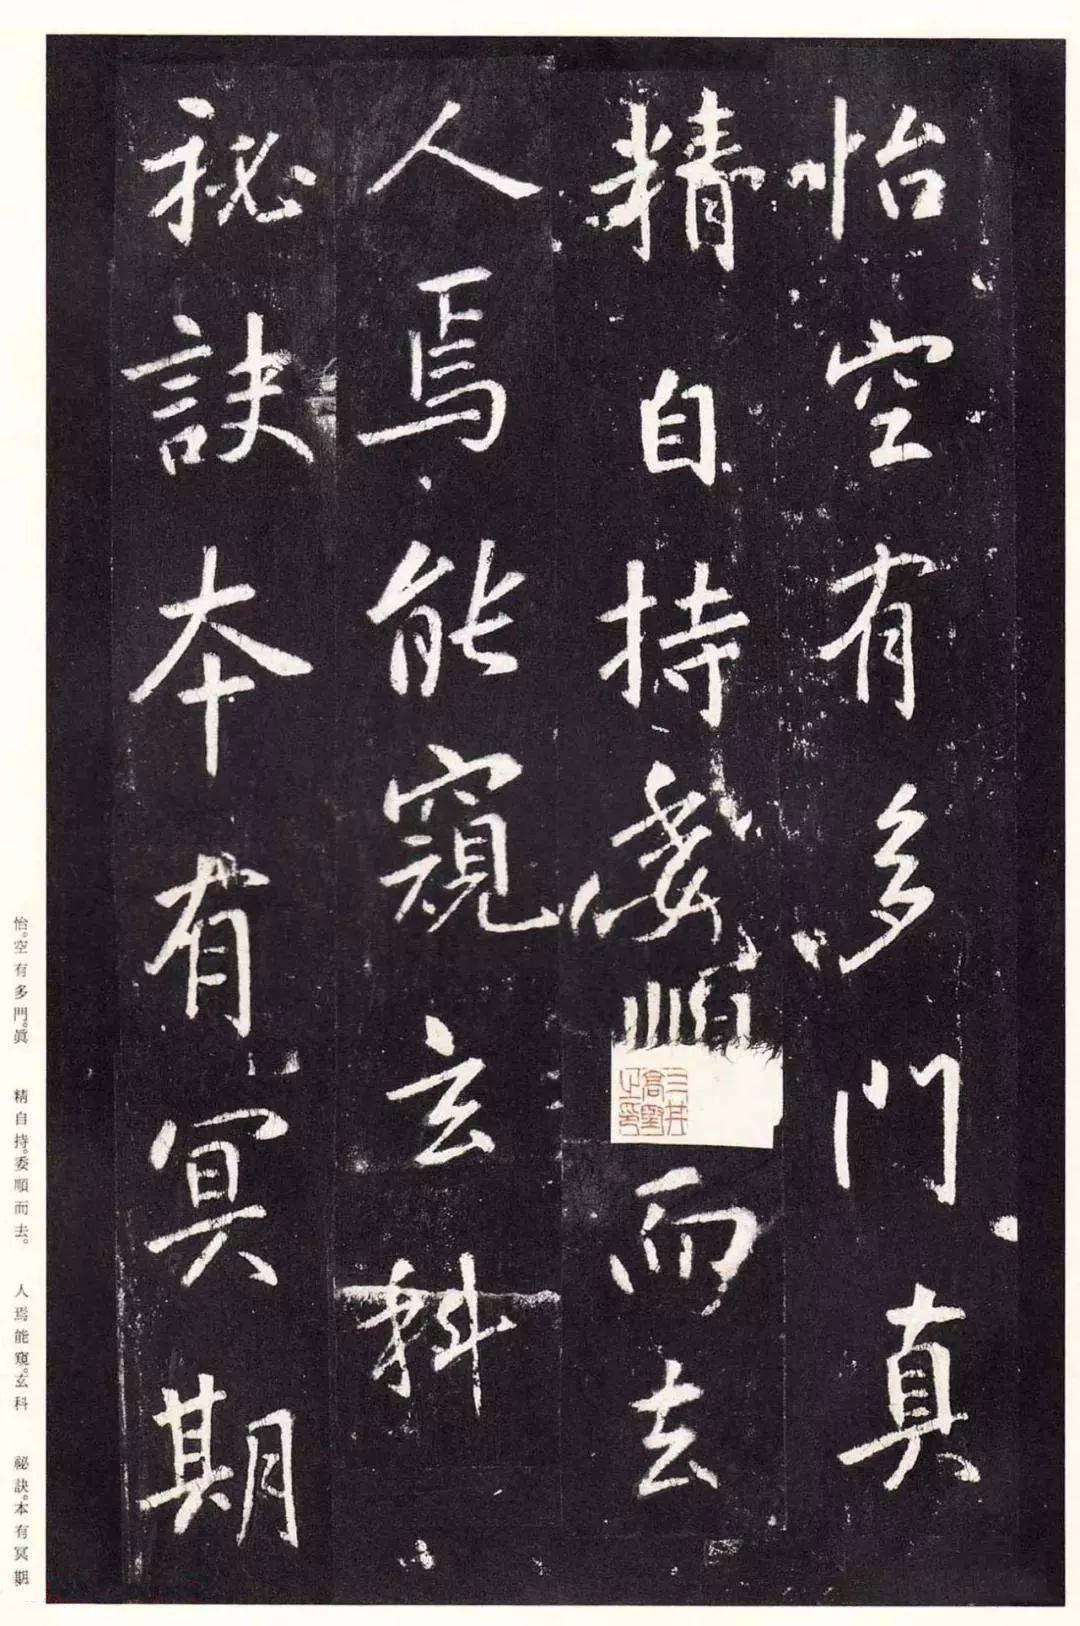 怡空有多門真
精自持委順而去
人焉能窺玄科
祕訣本有冥期
三井高堅
怡。空有多門。眞　精自持。委順而去。　人焉能窺。玄科　祕訣。本有冥期。